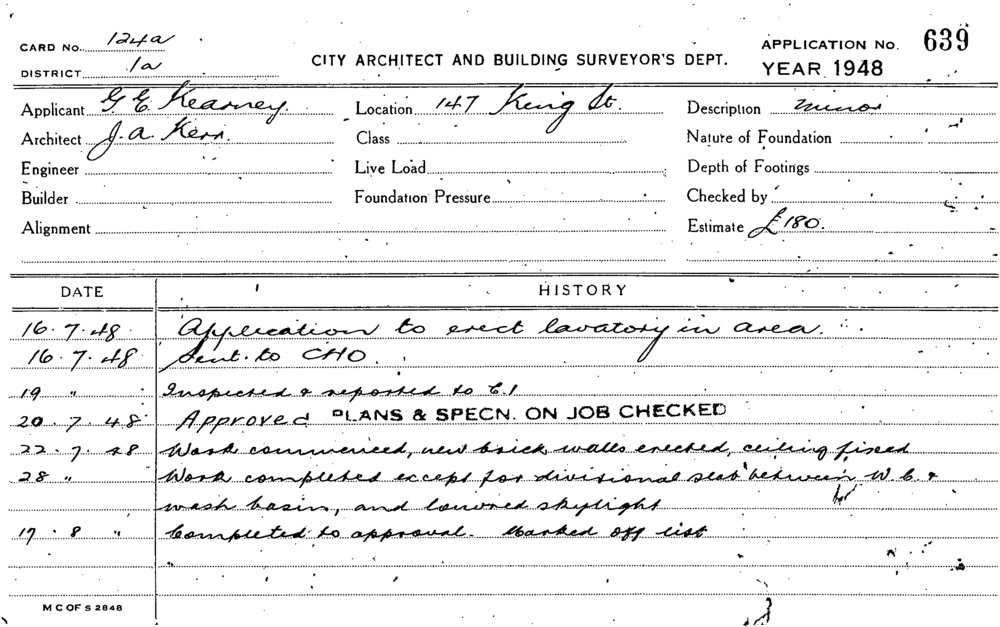 CARD No. 124a
DISTRICT 1a
CITY ARCHITECT AND BUILDING SURVEYOR'S DEPT.
APPLICATION No. 639
YEAR 1948
Applicant G. E. Kearney. Location 147 King St. Description minor
Architect J. A. Kerr. Class Nature of Foundation
Engineer Live Load Depth of Footings
Builder Foundation Pressure Checked by
Alignment Estimate £180.
DATE HISTORY
16.7.48 Application to erect lavatory in area.
16.7.48 Sent to CHO.
19 " Inspected & reported to C.I
20.7.48 Approved PLANS & SPECN. ON JOB CHECKED
22.7.48 Work commenced, new brick walls erected, ceiling fixed
28 " Work completed except for divisional slab between W.C. &
wash basin, and louvred skylight
17.8 " Completed to approval. Marked off list
M C OF S 2848